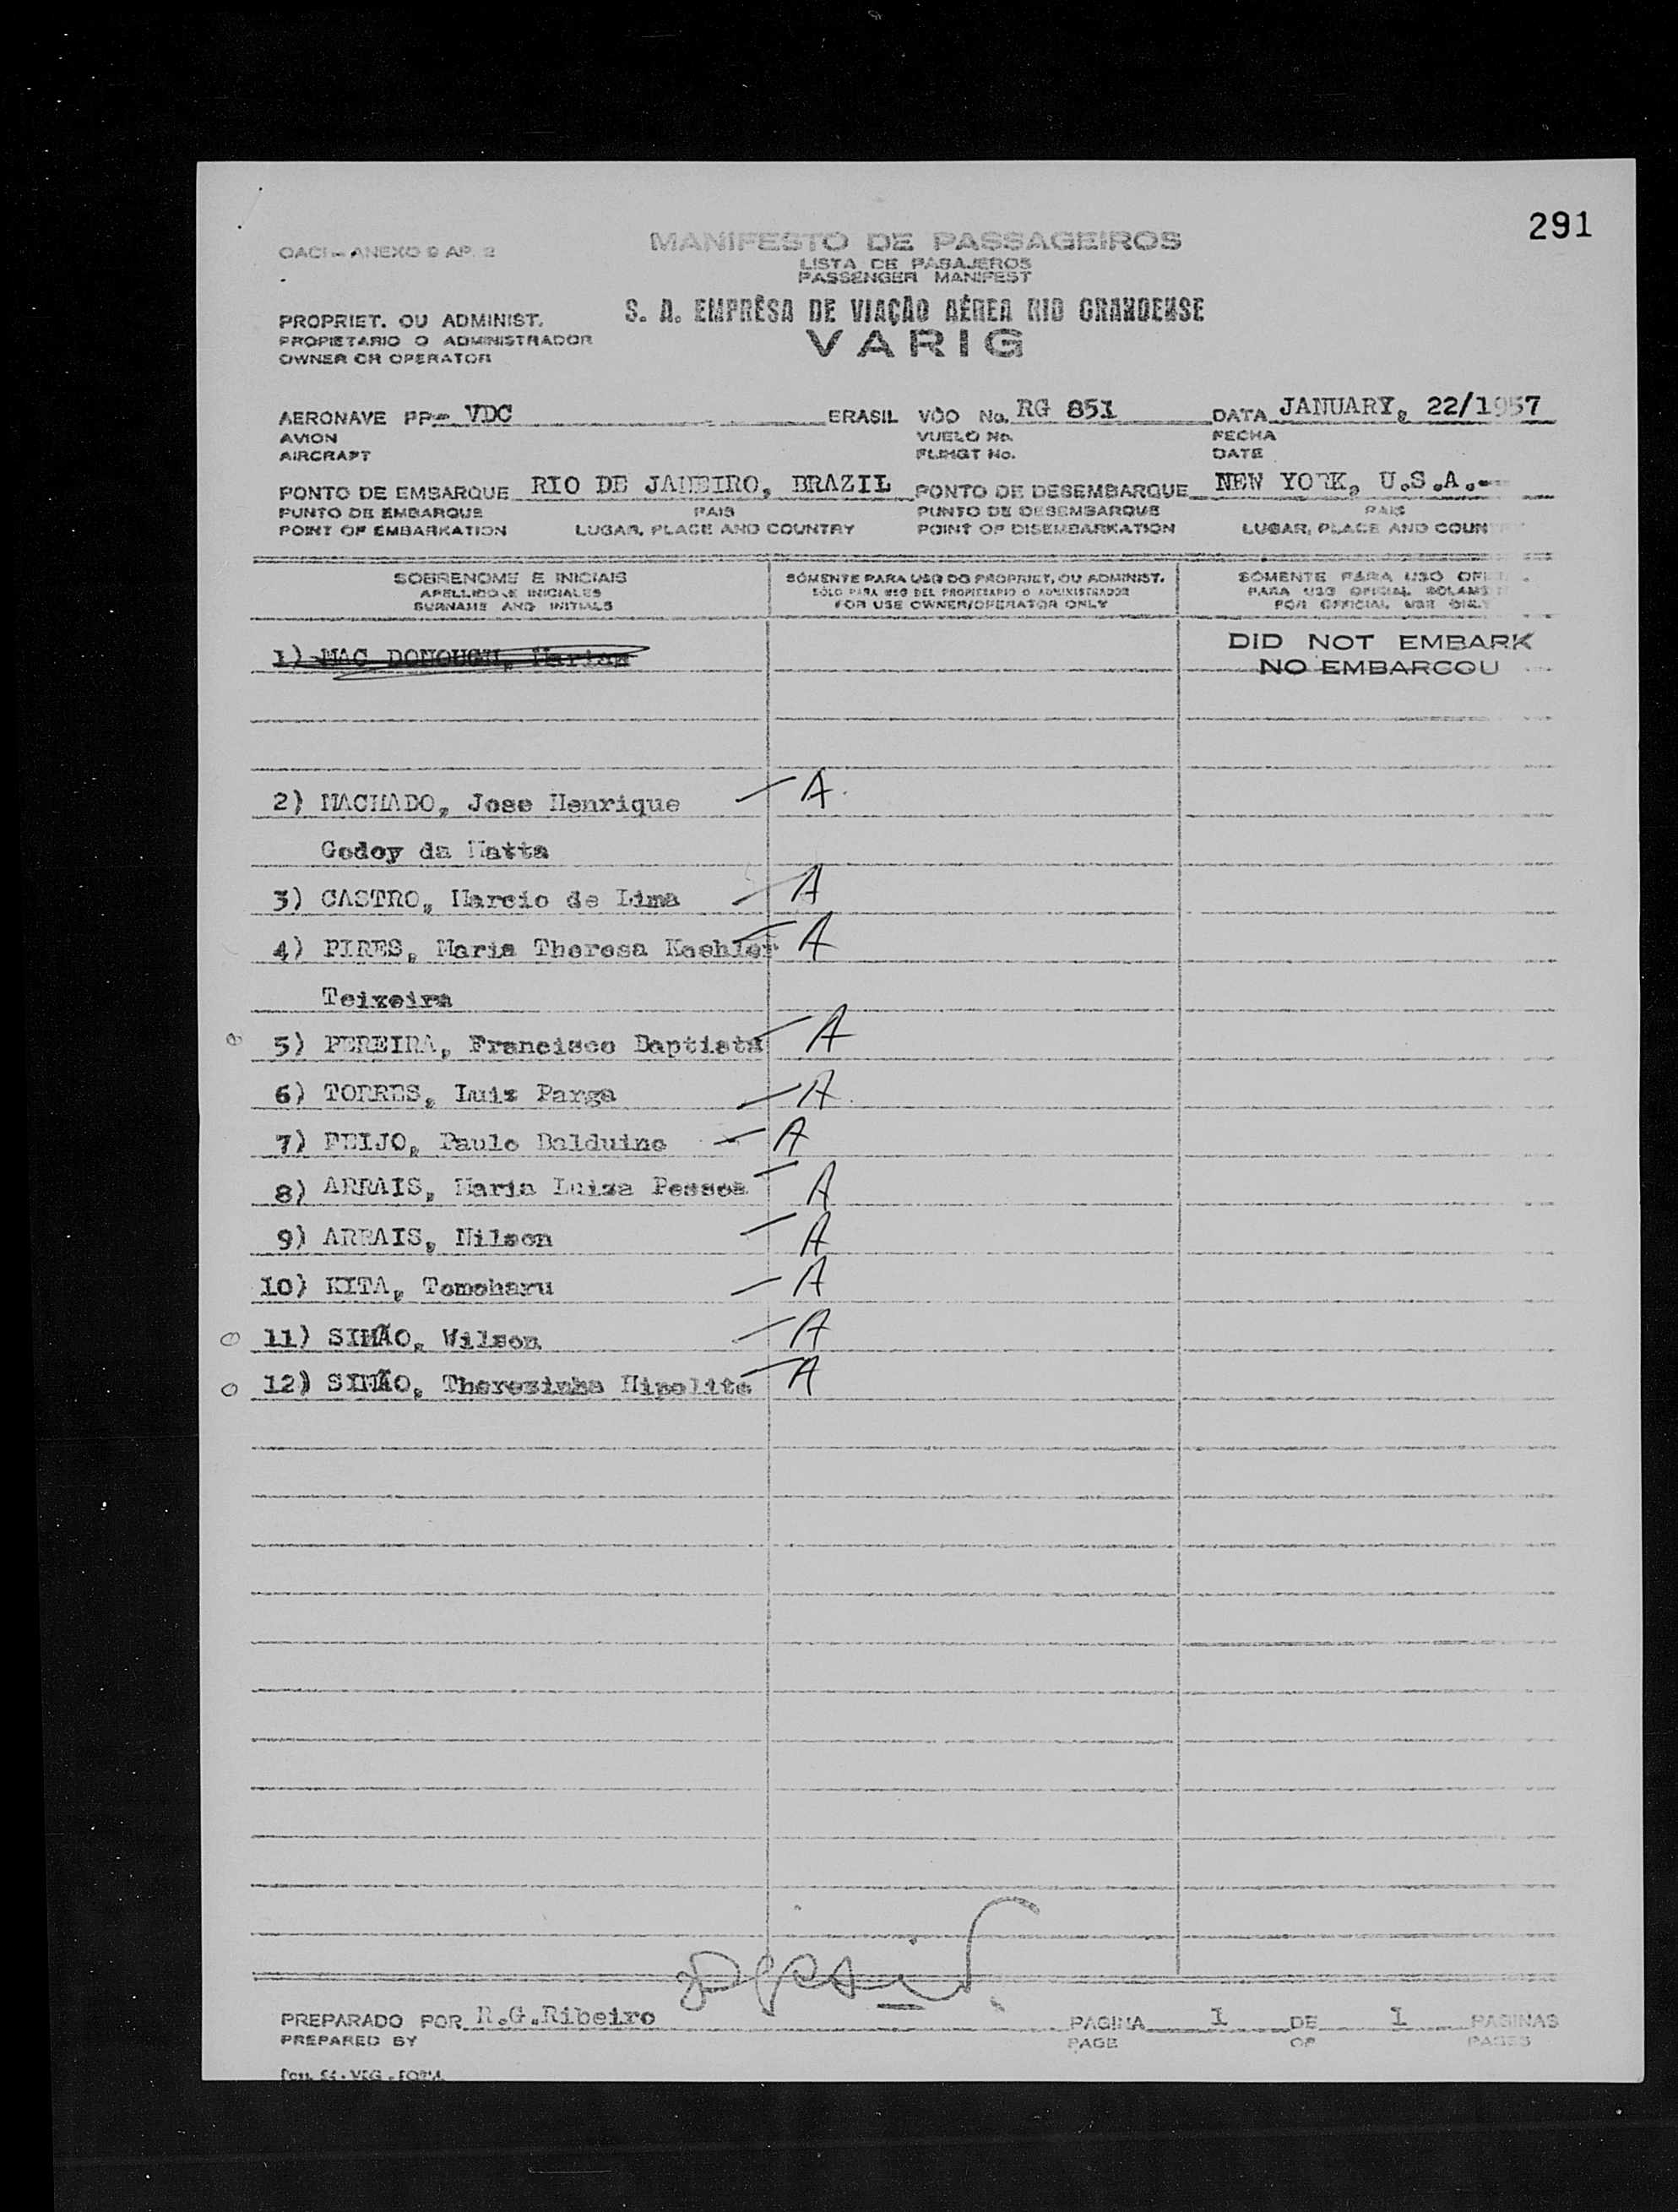 291
OACI - ANEXO 9 AP. 2
MANIFESTO DE PASSAGEIROS
LISTA DE PASAJEROS
PASSENGER MANIFEST
PROPRIET. OU ADMINIST.
PROPIETARIO O ADMINISTRADOR
OWNER OR OPERATOR
S. A. EMPRÊSA DE VIAÇÃO AÉREA RIO GRANDENSE
VARIG
AERONAVE PP- VDC BRASIL VÔO No. RG 851 DATA JANUARY, 22/1957
AVION VUELO No. FECHA
AIRCRAFT FLIHGT No. DATE
PONTO DE EMBARQUE RIO DE JANEIRO, BRAZIL PONTO DE DESEMBARQUE NEW YORK, U.S.A.--
PUNTO DE EMBARQUE PAIS PUNTO DE DESEMBARQUE PAIS
POINT OF EMBARKATION LUGAR, PLACE AND COUNTRY POINT OF DISEMBARKATION LUGAR, PLACE AND COUN
SOBRENOME E INICIAIS SÓMENTE PARA USO DO PROPRIET, OU ADMINIST. SÓMENTE PARA USO OFI
APELLIDO E INICIALES SÓLO PARA USO DEL PROPIETARIO O ADMINISTRADOR PARA USO OFICIAL SOLAM
SURNAME AND INITIALS FOR USE OWNER/OPERATOR ONLY FOR OFFICIAL USE ONLY
DID NOT EMBARK
1) MAC DONOUGH, Marian NO EMBARCOU
2) MACHADO, Jose Henrique A
Godoy da Matta
3) CASTRO, Marcio de Lima A
4) PIRES, Maria Theresa Koehler A
Teixeira
5) PEREIRA, Francisco Baptista A
6) TORRES, Luiz Parga A
7) FEIJO, Paulo Balduino A
8) ARRAIS, Maria Luiza Pessoa A
9) ARRAIS, Nilson A
10) KITA, Tomoharu A
11) SIMÃO, Wilson A
12) SIMÃO, Therezinha Hipolito A
PREPARADO POR R.G.Ribeiro PAGINA 1 DE 1 PAGINAS
PREPARED BY PAGE OF PAGES